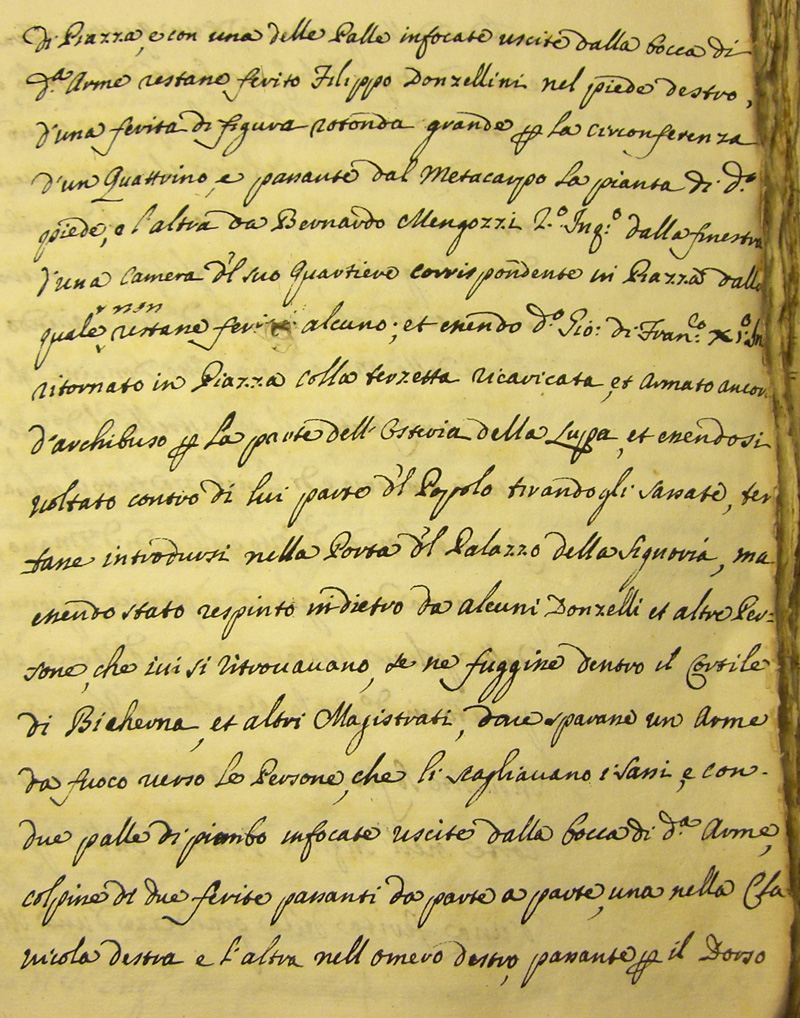 di Piazza, e con una delle Palle infocate uscite dalla bocca di
d.ª Arme restasse ferito Filippo Donzellini nel piede destro,
d'una ferita di figura rotonda grande p la circonferenza
d'un Quattrino, e passante dal Metacarpo la pianta di d.º
piede, e l'altra da Bernardo Mengozzi 2.º Inq.º dalla finestra
d'una Camera d'l suo Quartiere corrispondente in Piazza dalla
non
quale, restasse ferito alcuno; et essendo d.º Gio: di Fran.co
ritornato in Piazza colla terzetta ricaricata, et Armato ancor
d'archibuso p la parte dell'Osteria della Lupa, et essendosi
voltato contro di lui parte d'l Popolo tirandogli sassate, ten
tasse introdursi nella Porta d'l Palazzo della Signoria, ma
essendo stato respinto indietro da alcuni Donzelli et altre Per=
sone, che ivi si ritrovavano, se ne fuggisse dentro il Cortile
di Bicherna, et altri Magistrati, dove sparasse un Arme
da fuoco verso le Persone, che li scagliavano i sassi, e con
due palle di piombo infocate uscite dalla bocca di d.ª Arme,
colpisse di due ferite passanti da parte a parte, una nella Cla
vicola destra e l'altra nell omero destro, passante p il Dorso